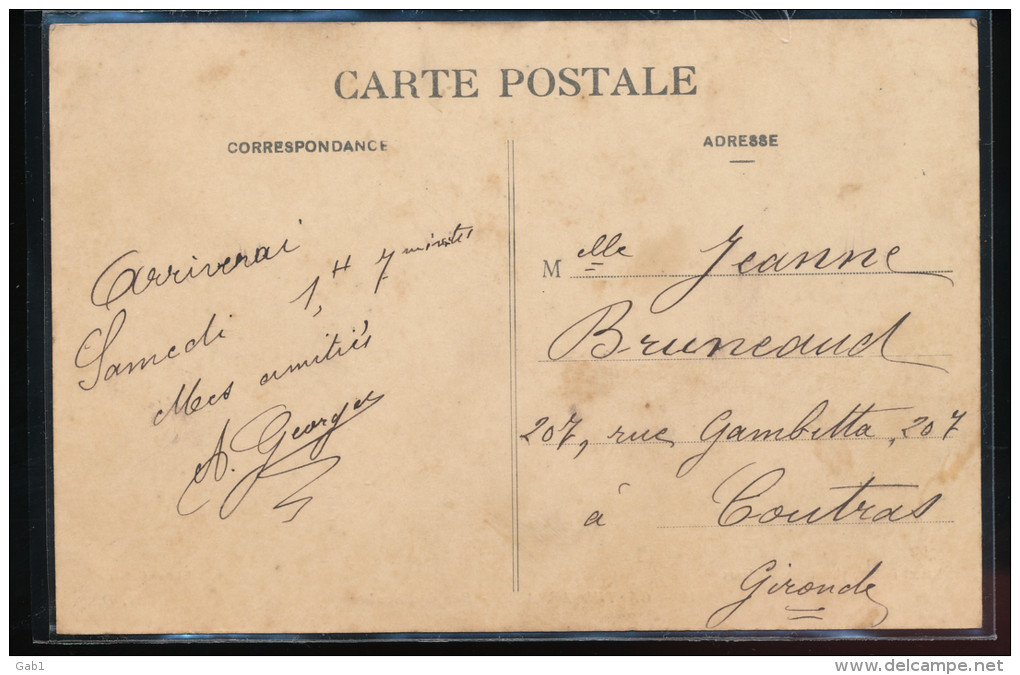 CARTE POSTALE
CORRESPONDANCE
Arriverai
Samedi 1,H 7 minutes
Mes amitiés
A. Georges
ADRESSE
Melle Jeanne
Bruneaud
207, rue Gambetta, 207
à Coutras
Gironde
Gab1
delcampe.net